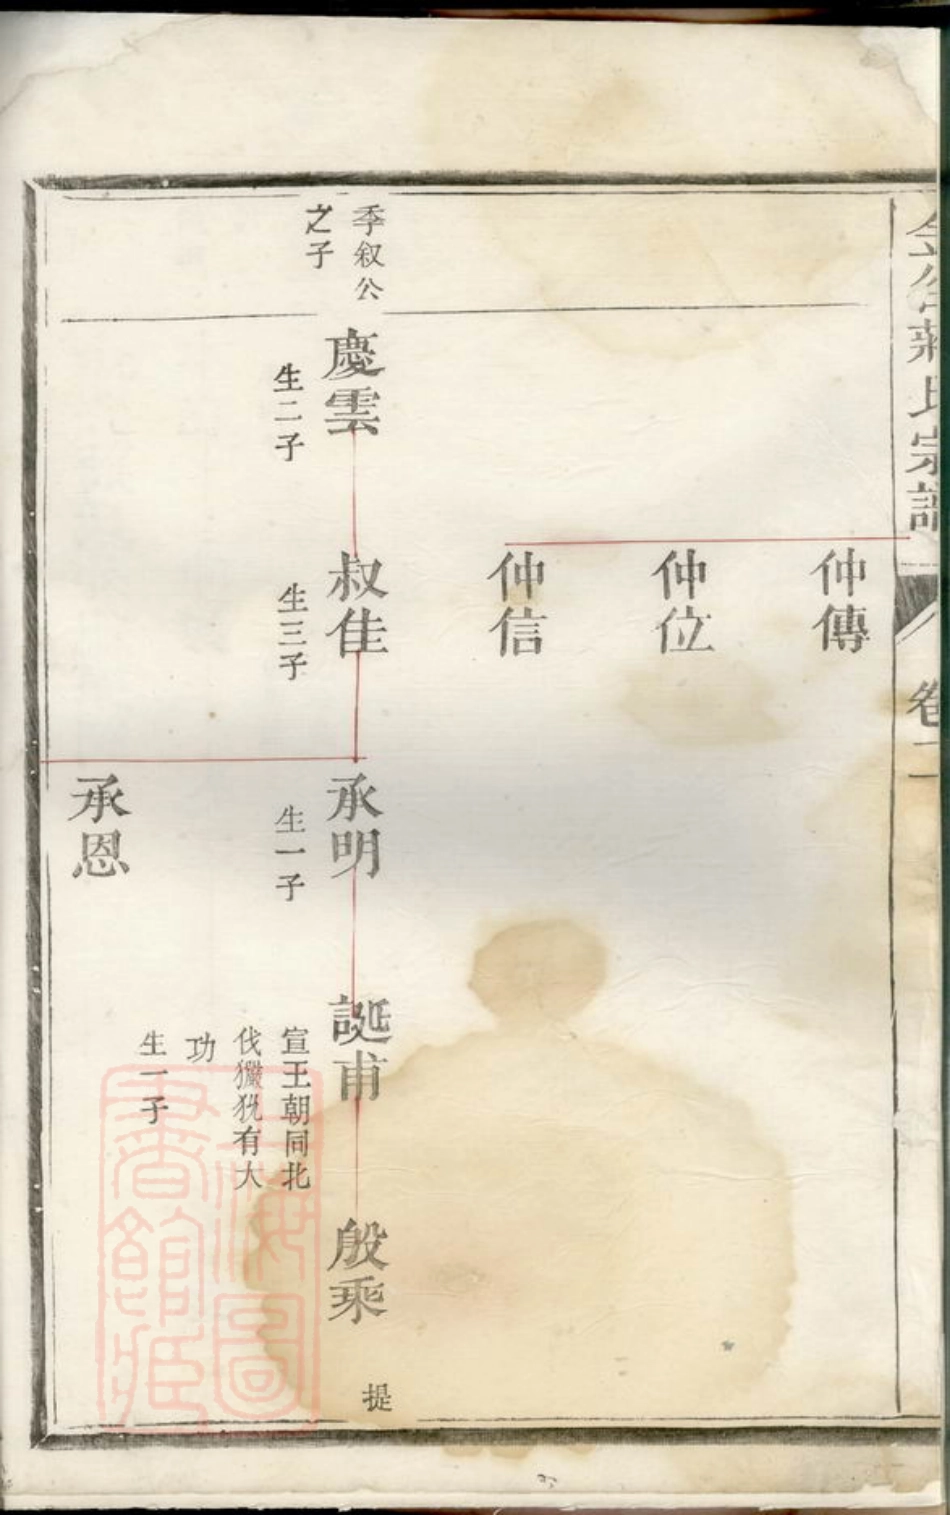 蔣氏宗譜
卷二
仲傳
仲位
仲信
季叙公
之子
慶雲
生二子
叔佳
生三子
承明
生一子
誕甫
宣王朝同北
伐玁狁有大
功
生一子
殷乘
提
承恩
上海圖
書館藏